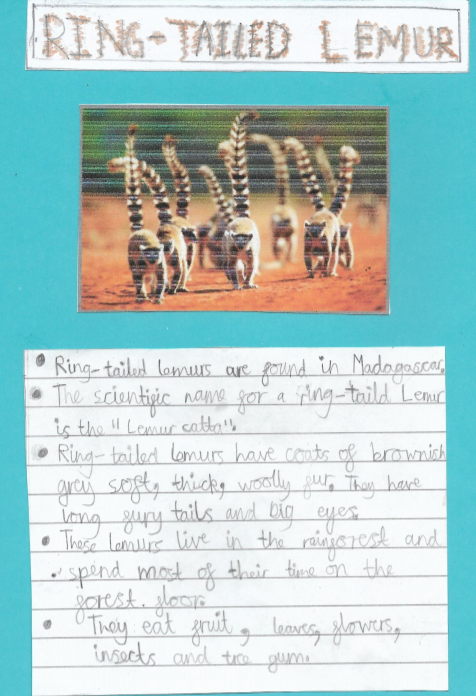 RING-TAILED LEMUR
• Ring-tailed lemurs are found in Madagascar.
• The scientific name for a ring-taild Lemur
is the "Lemur catta".
• Ring-tailed lemurs have coats of brownish
grey soft, thick, woolly fur. They have
long fury tails and big eyes.
• These lemurs live in the rainforest and
spend most of their time on the
forest. floor.
• They eat fruit, leaves, flowers,
insects and tree gum.